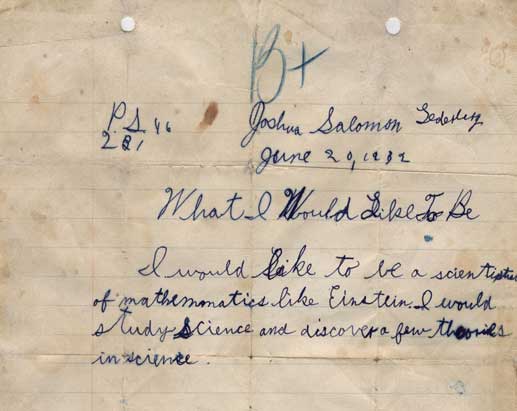 B+
P.S. 46
2B1
Joshua Salomon Lederberg
June 20, 1932
What I Would Like To Be
I would like to be a scientist
of mathematics like Einstein. I would
study science and discover a few theories
in science.